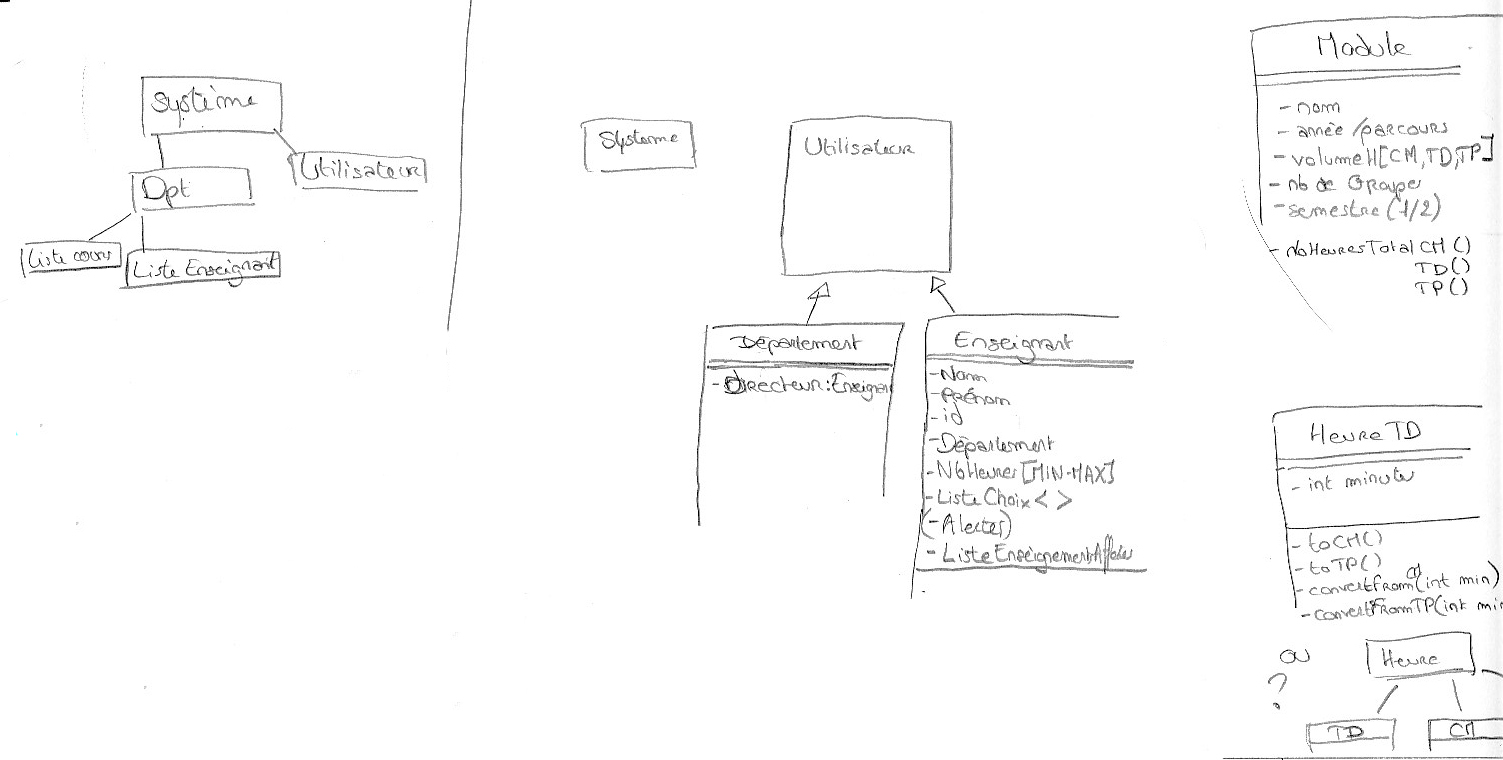 Système
Utilisateur
Dpt
Liste cours
Liste Enseignant
Systeme
Utilisateur
Département
-Directeur:Enseignan
Enseignant
-Nom
-Prénom
-id
-Département
-NbHeures[MIN-MAX]
-ListeChoix< >
(-Alertes)
- ListeEnseignement
Module
- nom
- année /parcours
- volumeH[CM,TD,TP]
- nb de Groupe
- semestre (1/2)
- NbHeuresTotalCM()
TD()
TP()
HeureTD
- int minute
- toCM()
- toTP()
- convertFromCM(int min)
- convertFromTP(int min
ou
?
Heure
TD
CM